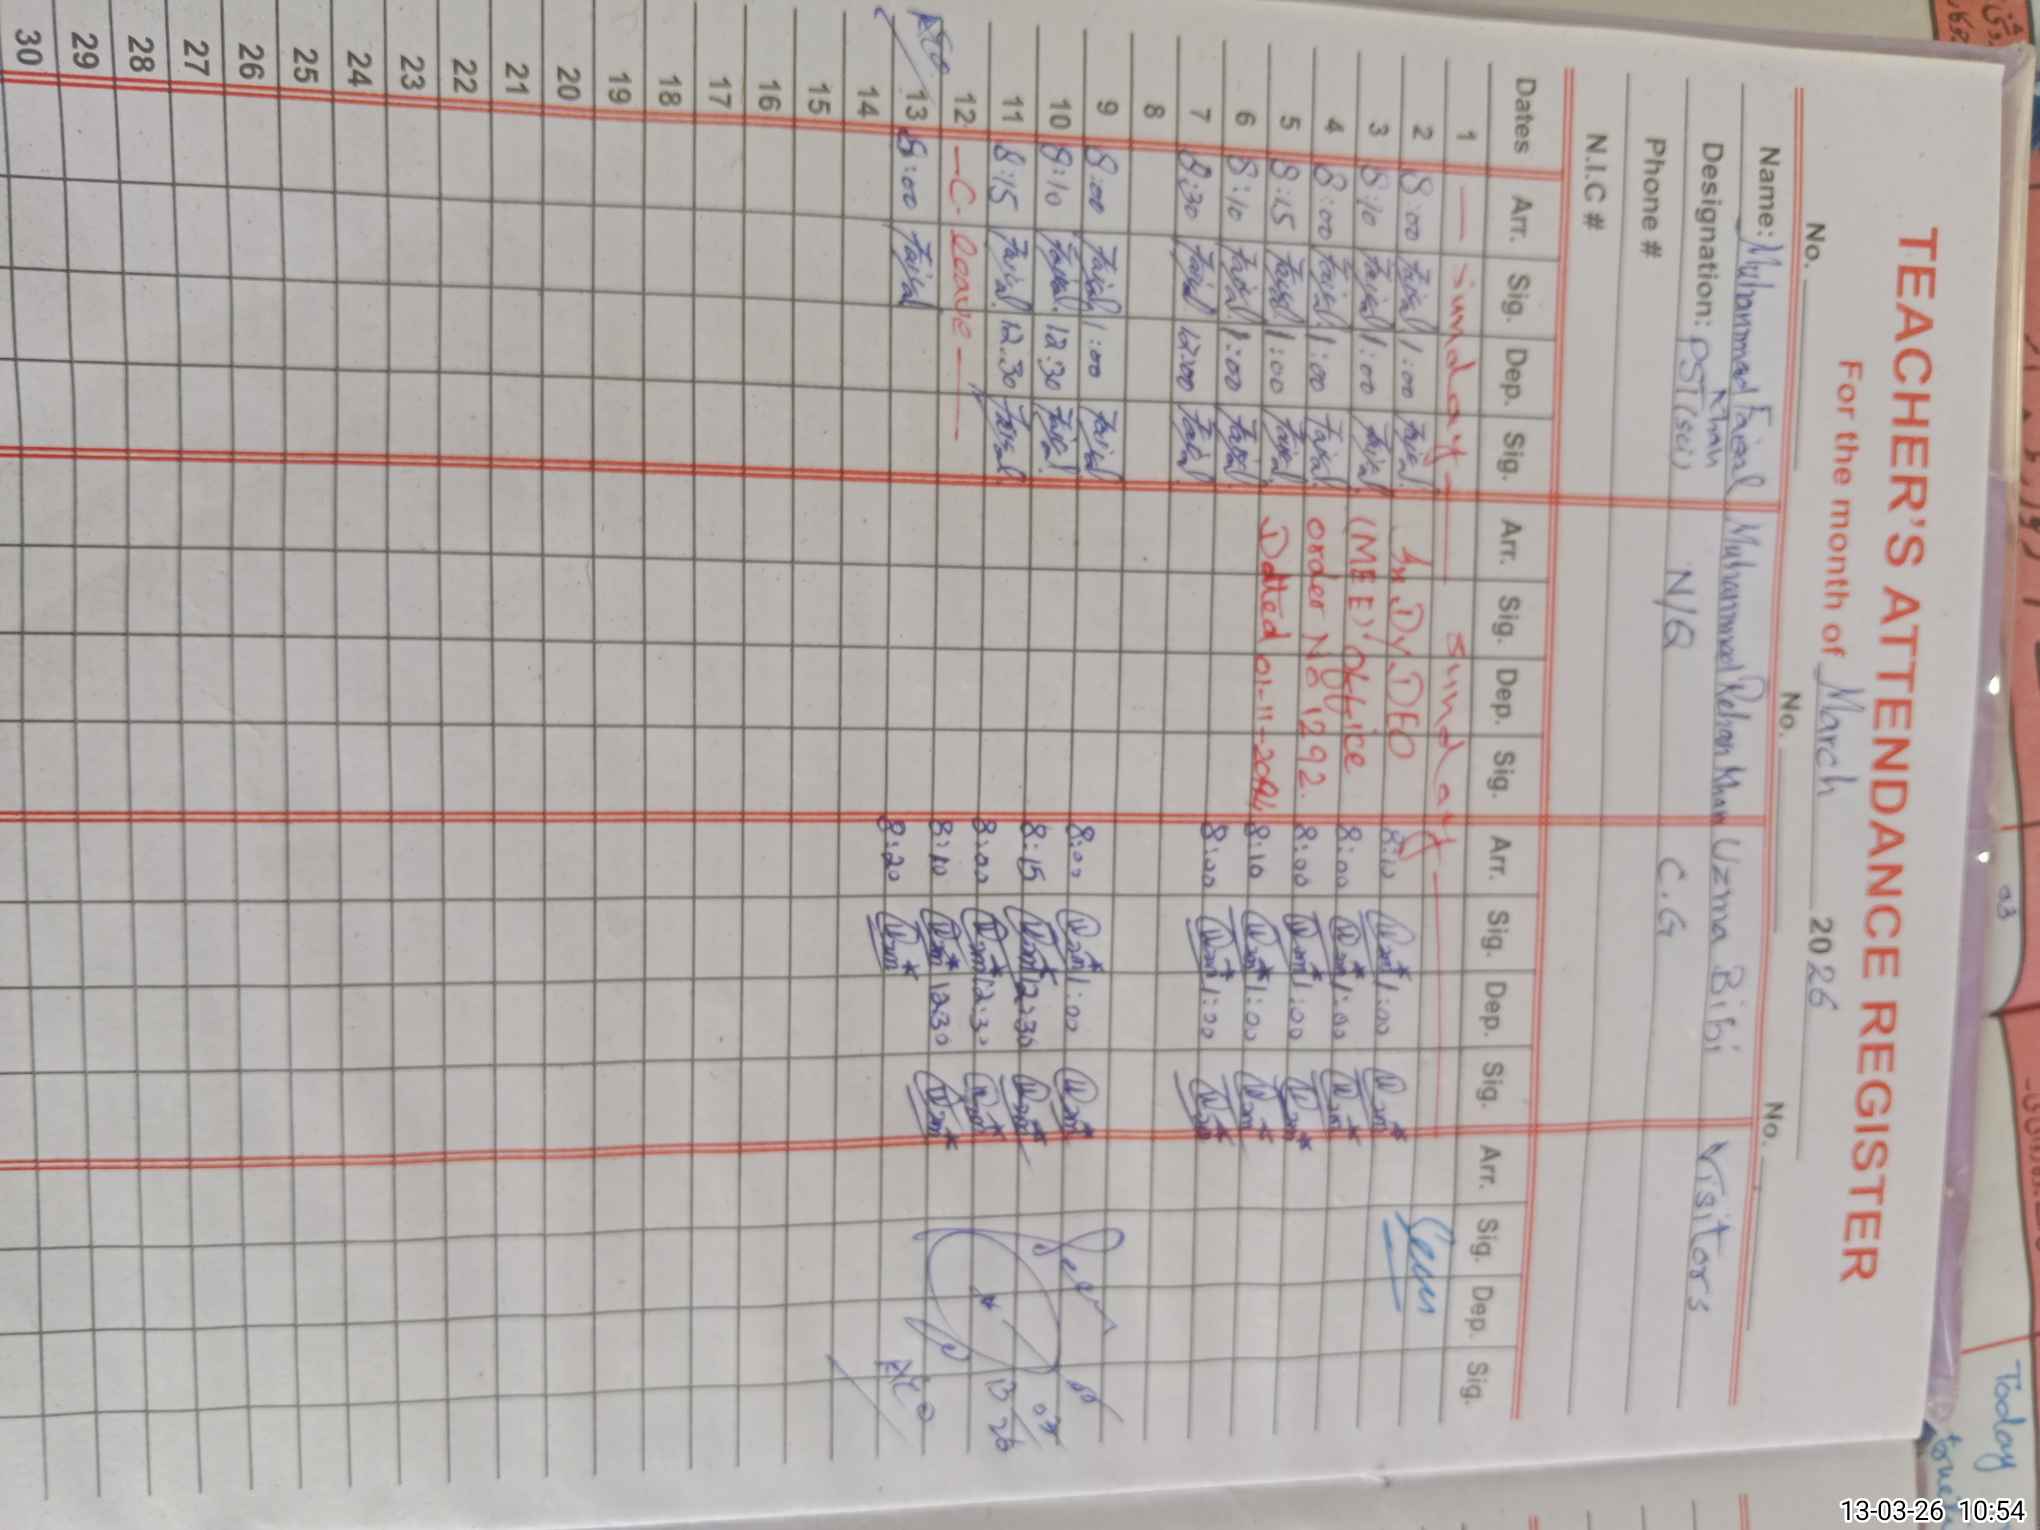 TEACHER'S ATTENDANCE REGISTER
For the month of March 2026
No. No. No.
Name: Muhammad Faisal Khan Muhammad Rehan Khan Uzma Bibi Visitors
Designation: PST (sci) N/Q C.G
Phone #
N.I.C #
Dates Arr. Sig. Dep. Sig. Arr. Sig. Dep. Sig. Arr. Sig. Dep. Sig. Arr. Sig. Dep. Sig.
1 — sunday — sunday —
2 8:00 Faisal 1:00 Faisal In Dy. DEO 8:10 Uzm 1:00 Uzm Seen
3 8:10 Faisal 1:00 Faisal (MEE) office 8:00 Uzm 1:00 Uzm
4 8:00 Faisal 1:00 Faisal order No 1292. 8:00 Uzm 1:00 Uzm
5 8:15 Faisal 1:00 Faisal Datted 01-11-2024 8:10 Uzm 1:00 Uzm
6 8:10 Faisal 1:00 Faisal 8:00 Uzm 1:00 Uzm
7 8:30 Faisal 12:00 Faisal
8
9 8:00 Faisal 1:00 Faisal 8:00 Uzm 1:00 Uzm
10 8:10 Faisal 12:30 Faisal 8:15 Uzm 12:30 Uzm
11 8:15 Faisal 12:30 Faisal 8:00 Uzm 12:30 Uzm
12 — C. leave — 8:10 Uzm 12:30 Uzm
13 8:00 Faisal 8:20 Uzm
14
15
16
17
18
19
20
21
22
23
24
25
26
27
28
29
30
03
Today
13-03-26 10:54